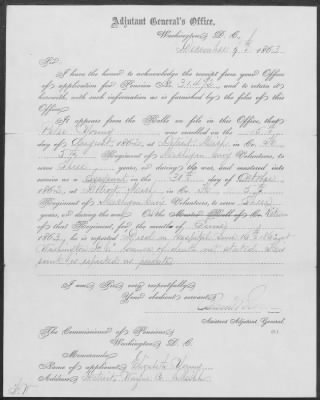 Adjutant General's Office,
Washington, D. C.,
December 9th, 1863
Sir:
I have the honor to acknowledge the receipt from your Office
of application for Pension No. and to return it
herewith, with such information as is furnished by the files of this
Office.
It appears from the Rolls on file in this Office, that
Young was enrolled on the
day of August, 1862, at Detroit Mich in Co.
5th Regiment of Michigan Cavy Volunteers, to
serve Three years, or during the war, and mustered into
service as a on the day of
1862, at Detroit Mich, in Co.
Regiment of Michigan Cavy Volunteers, to serve Three
years, or during the war. On the Muster Roll of Co.
of that Regiment, for the months of
1863, he is reported "Died in Hospital June 16th 1863 at
Washington D. C." Cause of death not stated. His
rank is reported as private
I am, Sir, very respectfully,
Your obedient servant,
Assistant Adjutant General.
The Commissioner of Pensions,
Washington, D. C.
Memoranda:
Name of applicant, Elizabeth Young
Address, Detroit, Wayne Co. Mich